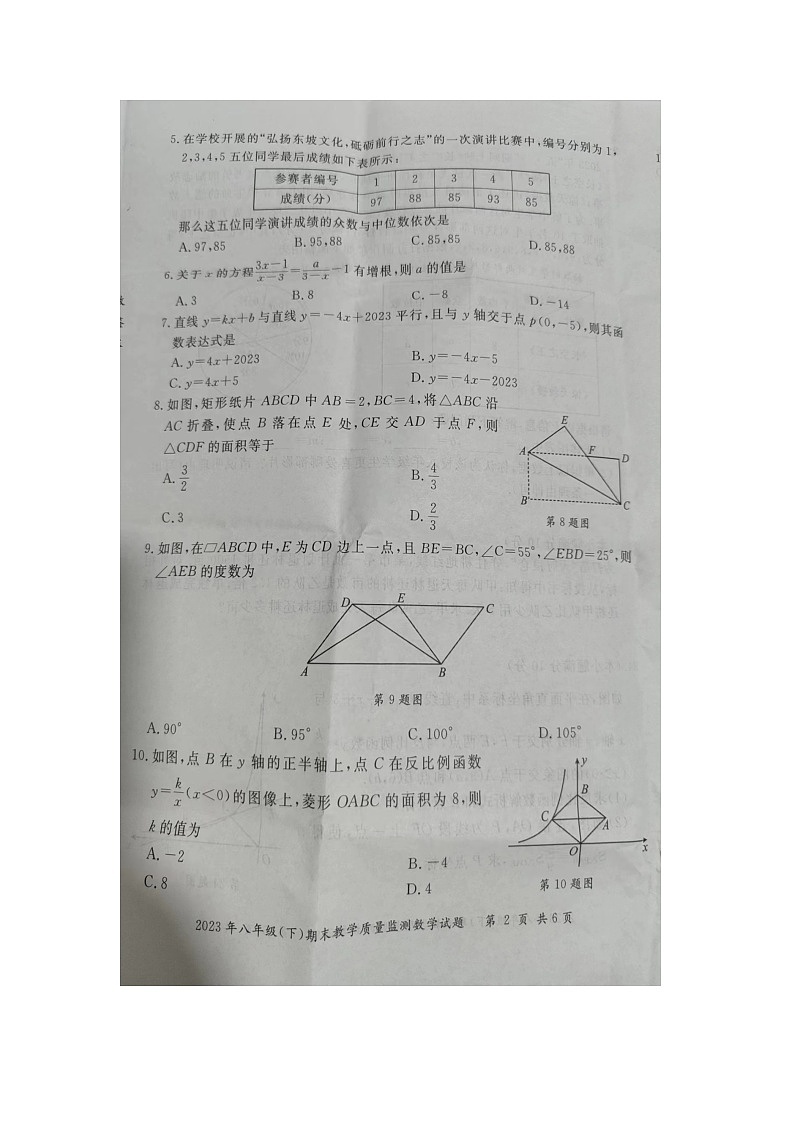 5.在学校开展的“弘扬东坡文化,砥砺前行之志”的一次演讲比赛中,编号分别为1,
2,3,4,5五位同学最后成绩如下表所示:
参赛者编号 1 2 3 4 5
成绩(分) 97 88 85 93 85
那么这五位同学演讲成绩的众数与中位数依次是
A.97,85 B.95,88 C.85,85 D.85,88
6.关于x的方程(3x-1)/(x-3)=a/(3-x)-1有增根,则a的值是
A.3 B.8 C.-8 D.-14
7.直线y=kx+b与直线y=-4x+2023平行,且与y轴交于点p(0,-5),则其函
数表达式是
A.y=4x+2023 B.y=-4x-5
C.y=4x+5 D.y=-4x-2023
8.如图,矩形纸片ABCD中AB=2,BC=4,将△ABC沿
AC折叠,使点B落在点E处,CE交AD于点F,则
△CDF的面积等于
A.3/2 B.4/3
C.3 D.2/3
E
A F D
B C
第8题图
9.如图,在▱ABCD中,E为CD边上一点,且BE=BC,∠C=55°,∠EBD=25°,则
∠AEB的度数为
D E C
A B
第9题图
A.90° B.95° C.100° D.105°
10.如图,点B在y轴的正半轴上,点C在反比例函数
y=k/x(x<0)的图像上,菱形OABC的面积为8,则
k的值为
A.-2 B.-4
C.8 D.4
y
B
C A
O x
第10题图
2023年八年级(下)期末教学质量监测数学试题 第2页 共6页